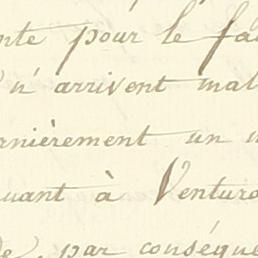 nte pour le fa
n'arrivent mal
rnièrement un
uant à Ventura
de, par conséque